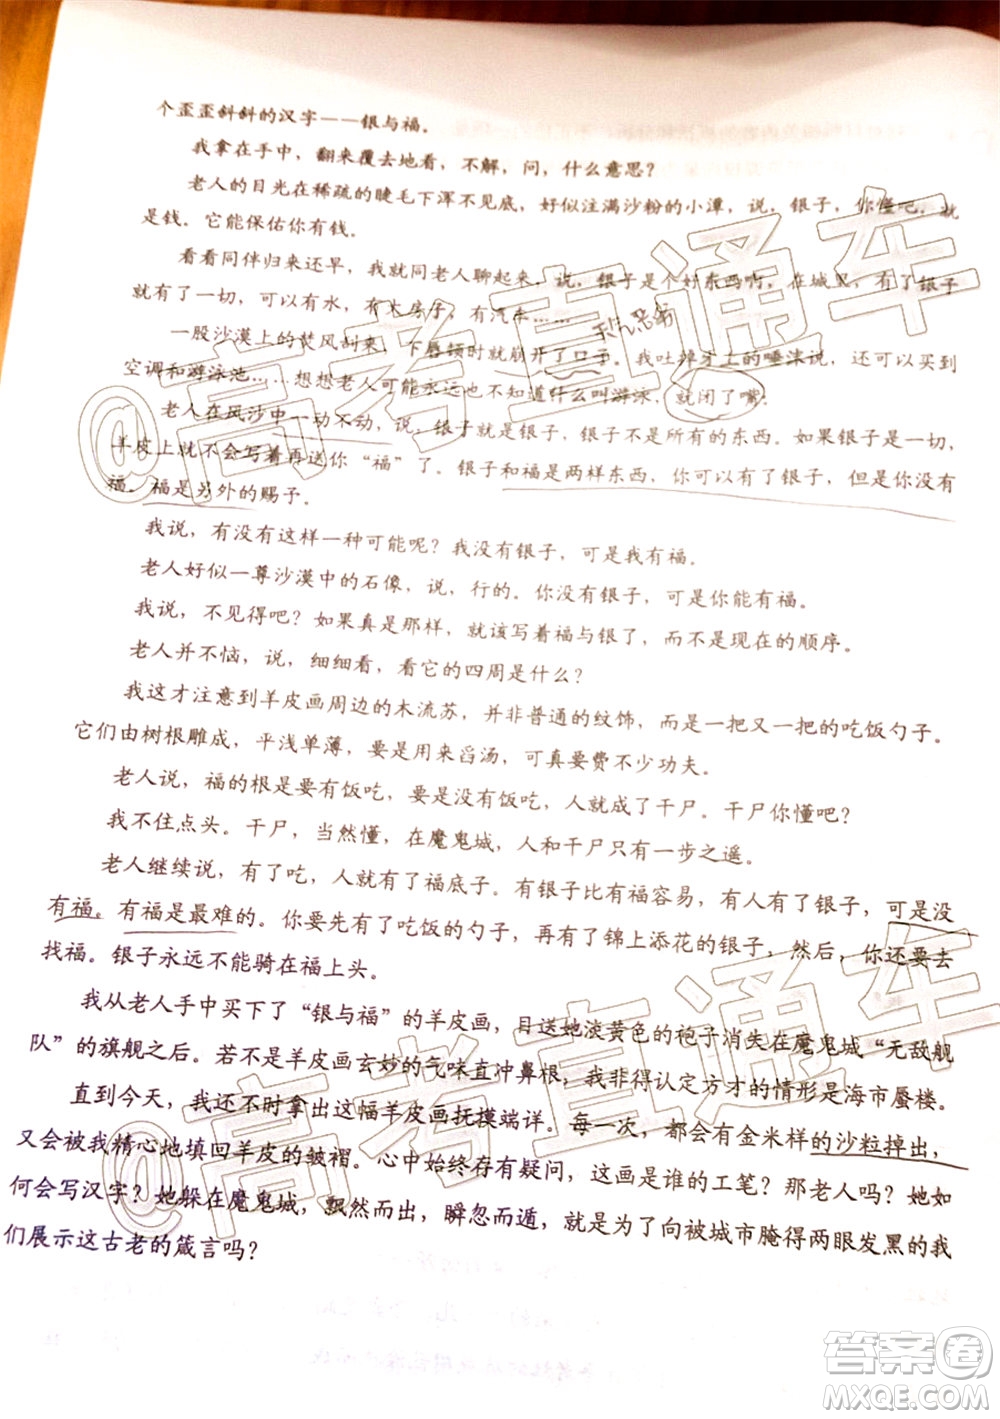 个歪歪斜斜的汉字——银与福。
我拿在手中，翻来覆去地看，不解，问，什么意思？
老人的目光在稀疏的睫毛下浑不见底，好似注满沙粉的小潭，说，银子，你懂吧，就
是钱。它能保佑你有钱。
看看同伴归来还早，我就同老人聊起来，说，银子是个好东西啊，在城里，有了银子
就有了一切，可以有水，有大房子，有汽车……
一股沙漠上的焚风刮来，下唇顿时就崩开了口子。我吐掉牙土的唾沫说，还可以买到
空调和游泳池……想想老人可能永远也不知道什么叫游泳，就闭了嘴。
老人在风沙中一动不动，说，银子就是银子，银子不是所有的东西。如果银子是一切，
羊皮上就不会写着再送你“福”了。银子和福是两样东西，你可以有了银子，但是你没有
福。福是另外的赐予。
我说，有没有这样一种可能呢？我没有银子，可是我有福。
老人好似一尊沙漠中的石像，说，行的。你没有银子，可是你能有福。
我说，不见得吧？如果真是那样，就该写着福与银了，而不是现在的顺序。
老人并不恼，说，细细看，看它的四周是什么？
我这才注意到羊皮画周边的木流苏，并非普通的纹饰，而是一把又一把的吃饭勺子。
它们由树根雕成，平浅单薄，要是用来舀汤，可真要费不少功夫。
老人说，福的根是要有饭吃，要是没有饭吃，人就成了干尸。干尸你懂吧？
我不住点头。干尸，当然懂，在魔鬼城，人和干尸只有一步之遥。
老人继续说，有了吃，人就有了福底子。有银子比有福容易，有人有了银子，可是没
有福。有福是最难的。你要先有了吃饭的勺子，再有了锦上添花的银子，然后，你还要去
找福。银子永远不能骑在福上头。
我从老人手中买下了“银与福”的羊皮画，目送她淡黄色的袍子消失在魔鬼城“无敌舰
队”的旗舰之后。若不是羊皮画玄妙的气味直冲鼻根，我非得认定方才的情形是海市蜃楼。
直到今天，我还不时拿出这幅羊皮画抚摸端详。每一次，都会有金米样的沙粒掉出，
又会被我精心地填回羊皮的皱褶。心中始终存有疑问，这画是谁的工笔？那老人吗？她如
何会写汉字？她躲在魔鬼城，飘然而出，瞬忽而遁，就是为了向被城市腌得两眼发黑的我
们展示这古老的箴言吗？
@高考直通车
@高考直通车
答案圈
MXQE.COM